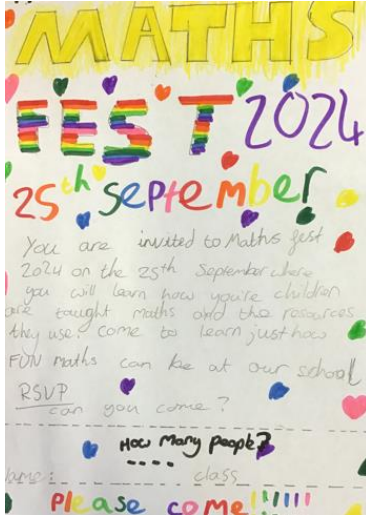 MATHS
FEST 2024
25th September
You are invited to Maths fest
2024 on the 25th September where
you will learn how you're children
are taught maths and the resources
they use. Come to learn just how
FUN maths can be at our school
RSVP
can you come?
How Many people?
....
Name: class
Please come!!!!!!